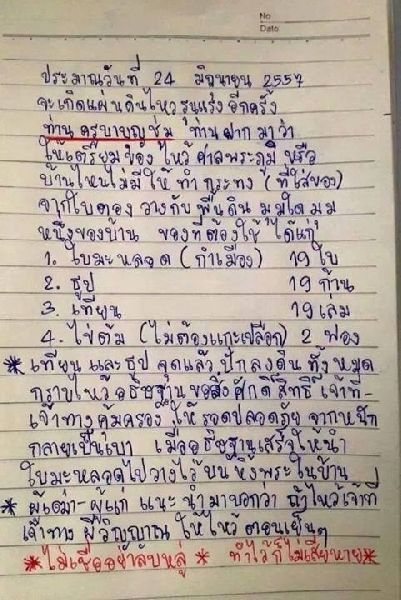 No
Date
ประมาณวันที่ 24 มิถุนายน 2557
จะเกิดแผ่นดินไหวรุนแรง อีกครั้ง
ท่านครูบาบุญชุ่ม ท่านฝากมาว่า
ให้เตรียมของไหว้ศาลพระภูมิ หรือ
บ้านไหนไม่มีให้ทำกระทง (ที่ใส่ของ)
จากใบตอง วางกับพื้นดิน มุมใดมุม
หนึ่งของบ้าน ของที่ต้องใช้ ได้แก่
1. ใบมะหลอด (กำเมือง) 19 ใบ
2. ธูป 19 ก้าน
3. เทียน 19 เล่ม
4. ไข่ต้ม (ไม่ต้องแกะเปลือก) 2 ฟอง
* เทียน และธูป จุดแล้ว ปักลงดิน ทั้งหมด
กราบไหว้อธิษฐานขอสิ่งศักดิ์สิทธิ์ เจ้าที่-
เจ้าทาง คุ้มครอง ให้รอดปลอดภัย จากหนัก
กลายเป็นเบา เมื่ออธิษฐานเสร็จให้นำ
ใบมะหลอดไปวางไว้บนหิ้งพระในบ้าน
* ผู้เฒ่า-ผู้แก่ แนะนำมาบอกว่า ถ้าไหว้เจ้าที่
เจ้าทาง ผีวิญญาณ ให้ไหว้ตอนเย็นๆ
*ไม่เชื่ออย่าลบหลู่ * ทำไว้ก็ไม่เสียหาย*